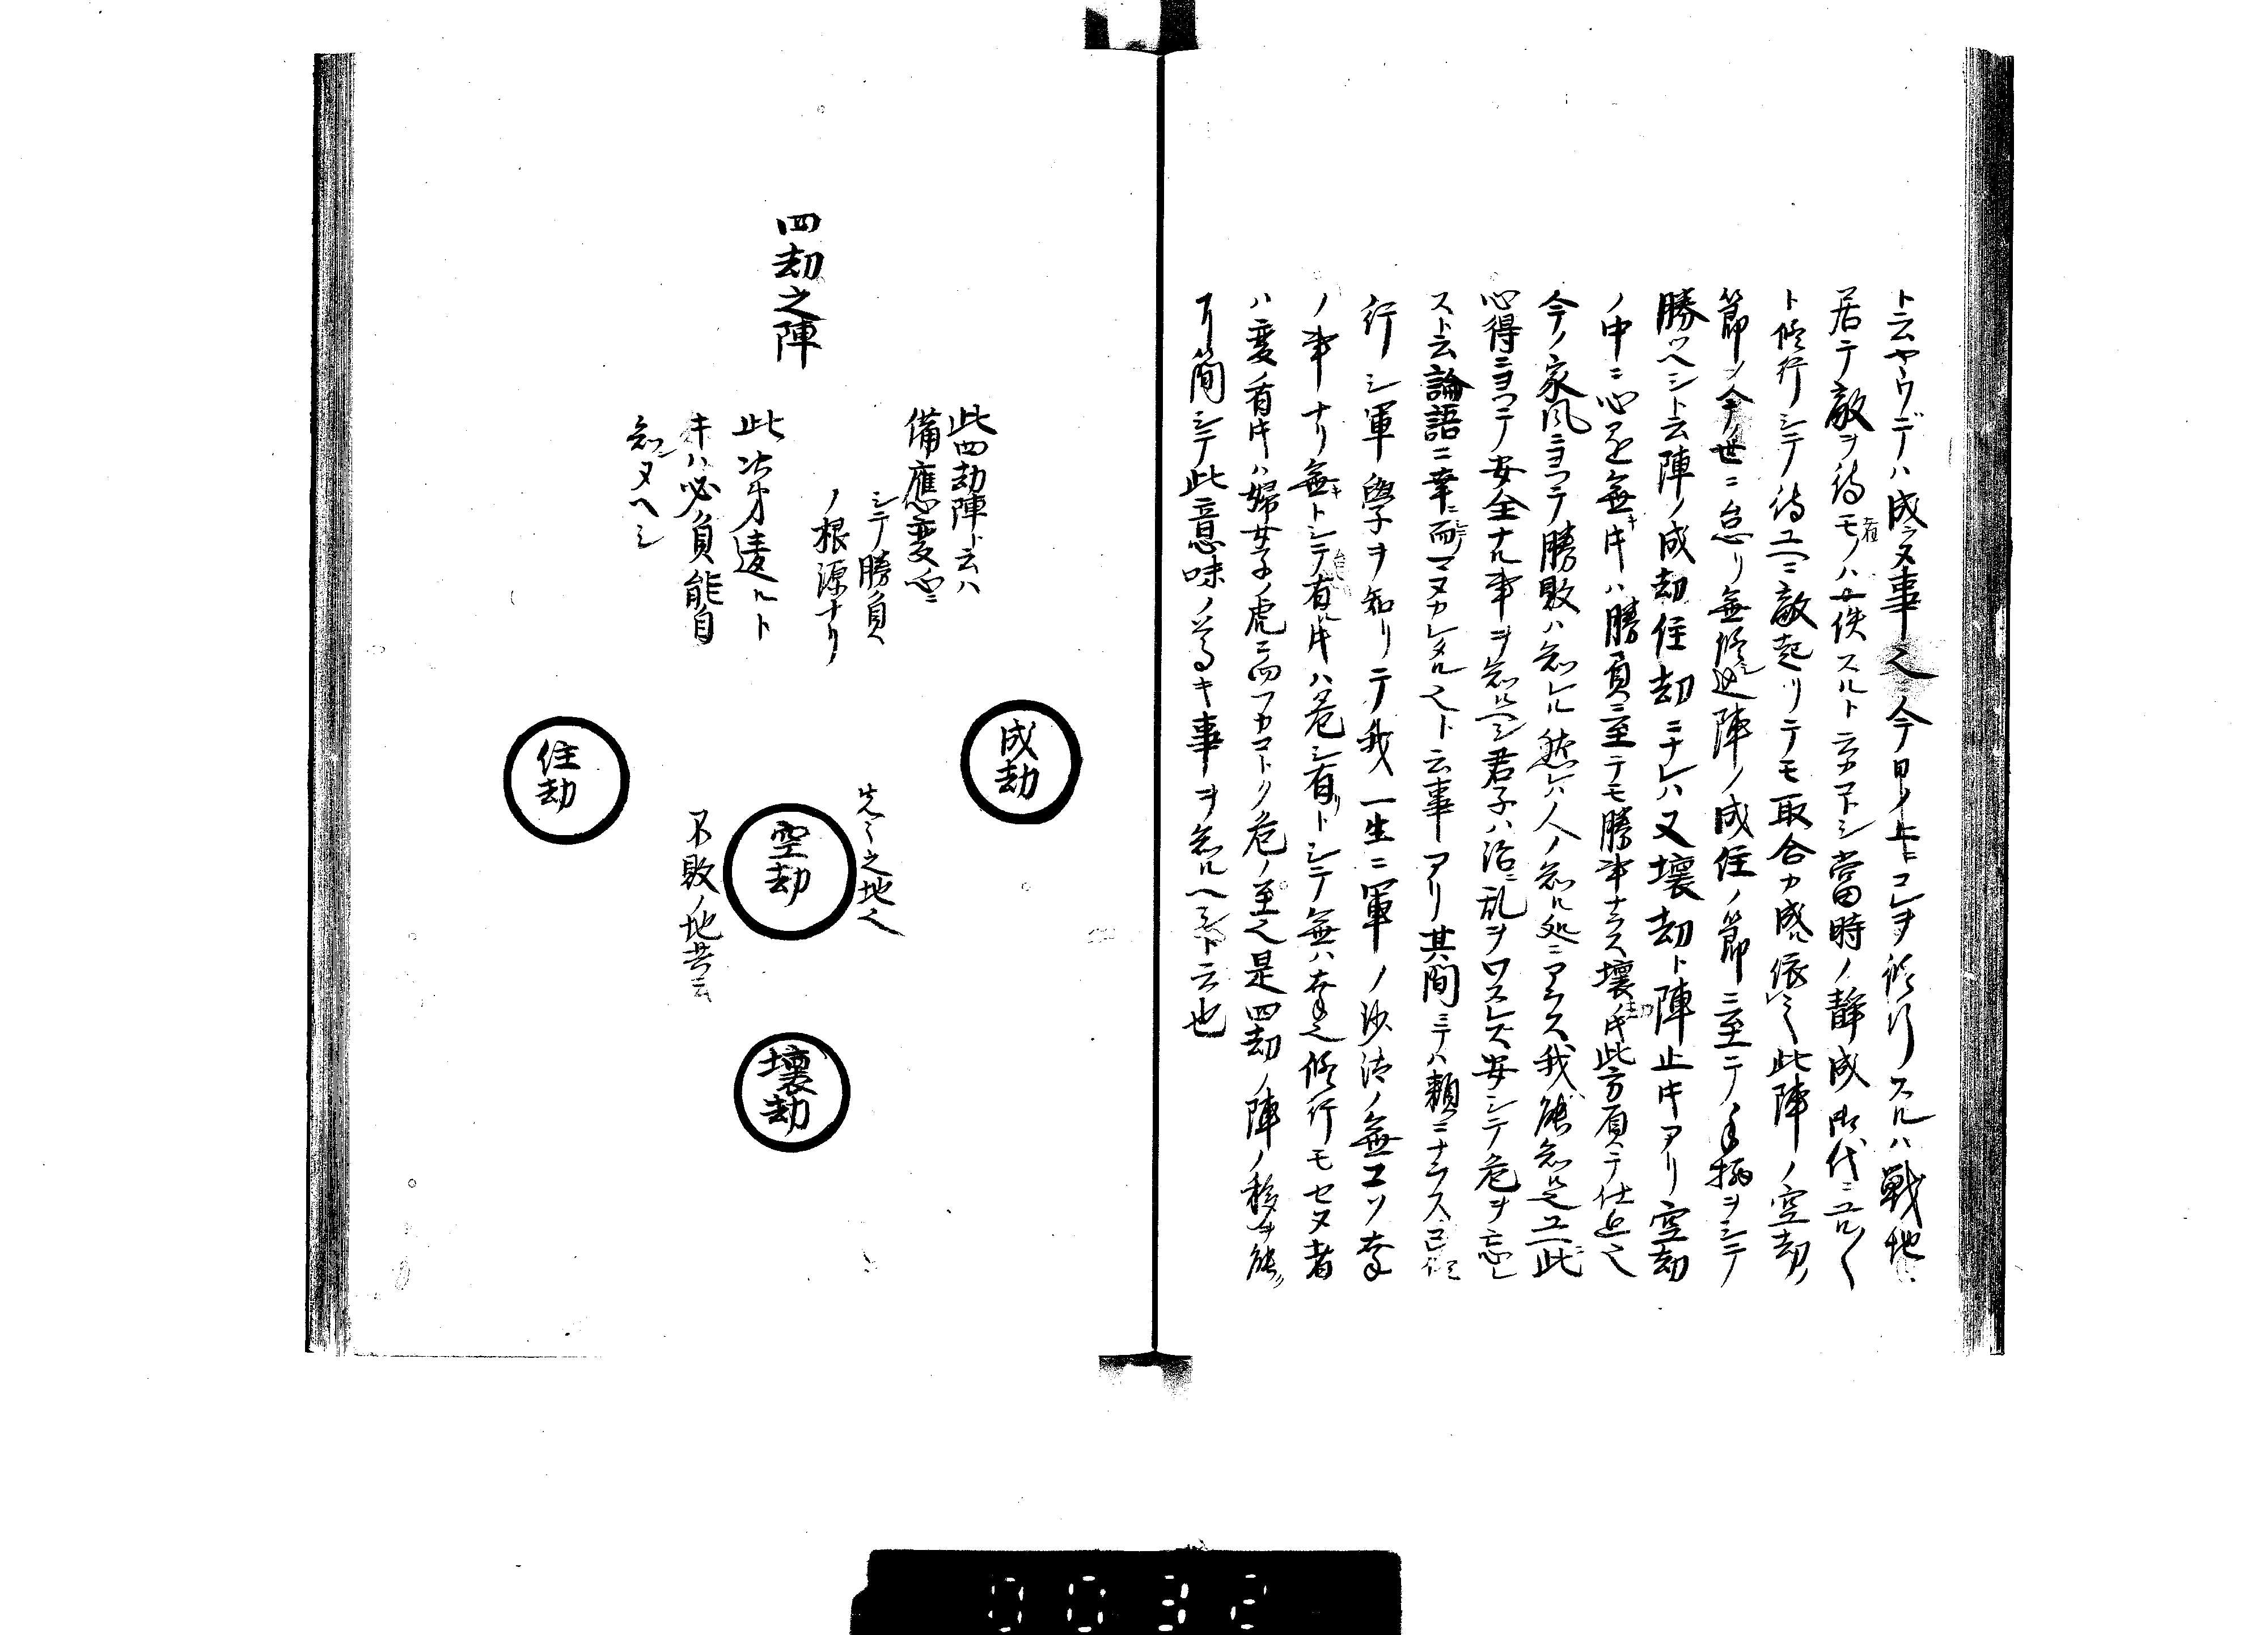 ト云ヤウデハ成ヌ事也今日ノ上ニコレヲ修行スルハ戦地ニ
居テ敵ヲ待モノハ安佚スルト云カコトシ當時ノ静成御代ニユル〱
ト修行シテ待ユヘニ敵起リテモ取合カ成ル依之此陣ノ空劫ノ
節ノ今ノ世ニ怠リ無修シ此陣ノ成住ノ節ニ至テノ手柄ヲシテ
勝ツヘシト云陣ノ成劫住劫ニナレハ又壊劫ト陣止キアリ空劫
ノ中ニ心不無キ時ハ勝負ニ至テモ勝事ナラス壊劫ノ時此方負テ仕迄也
今ノ家風ニヨツテ勝敗ハ知レル然レハ人ノ知ル処ニアラス我能知ルユヘ此
心得ニヨツテ安全ナル事ヲ知ルヘシ君子ハ治ニ乱ヲワスレス安シテ危ヲ忘レ
スト云論語ニ幸ニ而マヌカレタル也ト云事アリ其間ニテハ頼ニナラス己修
行シ軍學ヲ知リテ我一生ニ軍ノ沙法ノ無コソ幸
ノ事ナリ無キトシテ有ル時ハ危シ有リトシテ無ハ幸也修行モセヌ者
ハ変ノ有時ハ婦女子ノ虎ニ向フカコトク危ノ至也是四劫ノ陣ノ移ヲ能
了簡シテ此意味ノ尊キ事ヲ知ルヘシト云也
四劫之陣
此四劫陣ト云ハ
備應変心ニ
シテ勝負
ノ根源ナリ
此次第違ルト
キハ必負能自
知ヌヘシ
成劫
先之地也
空劫
不敗ノ地共云
住劫
壊劫
0032